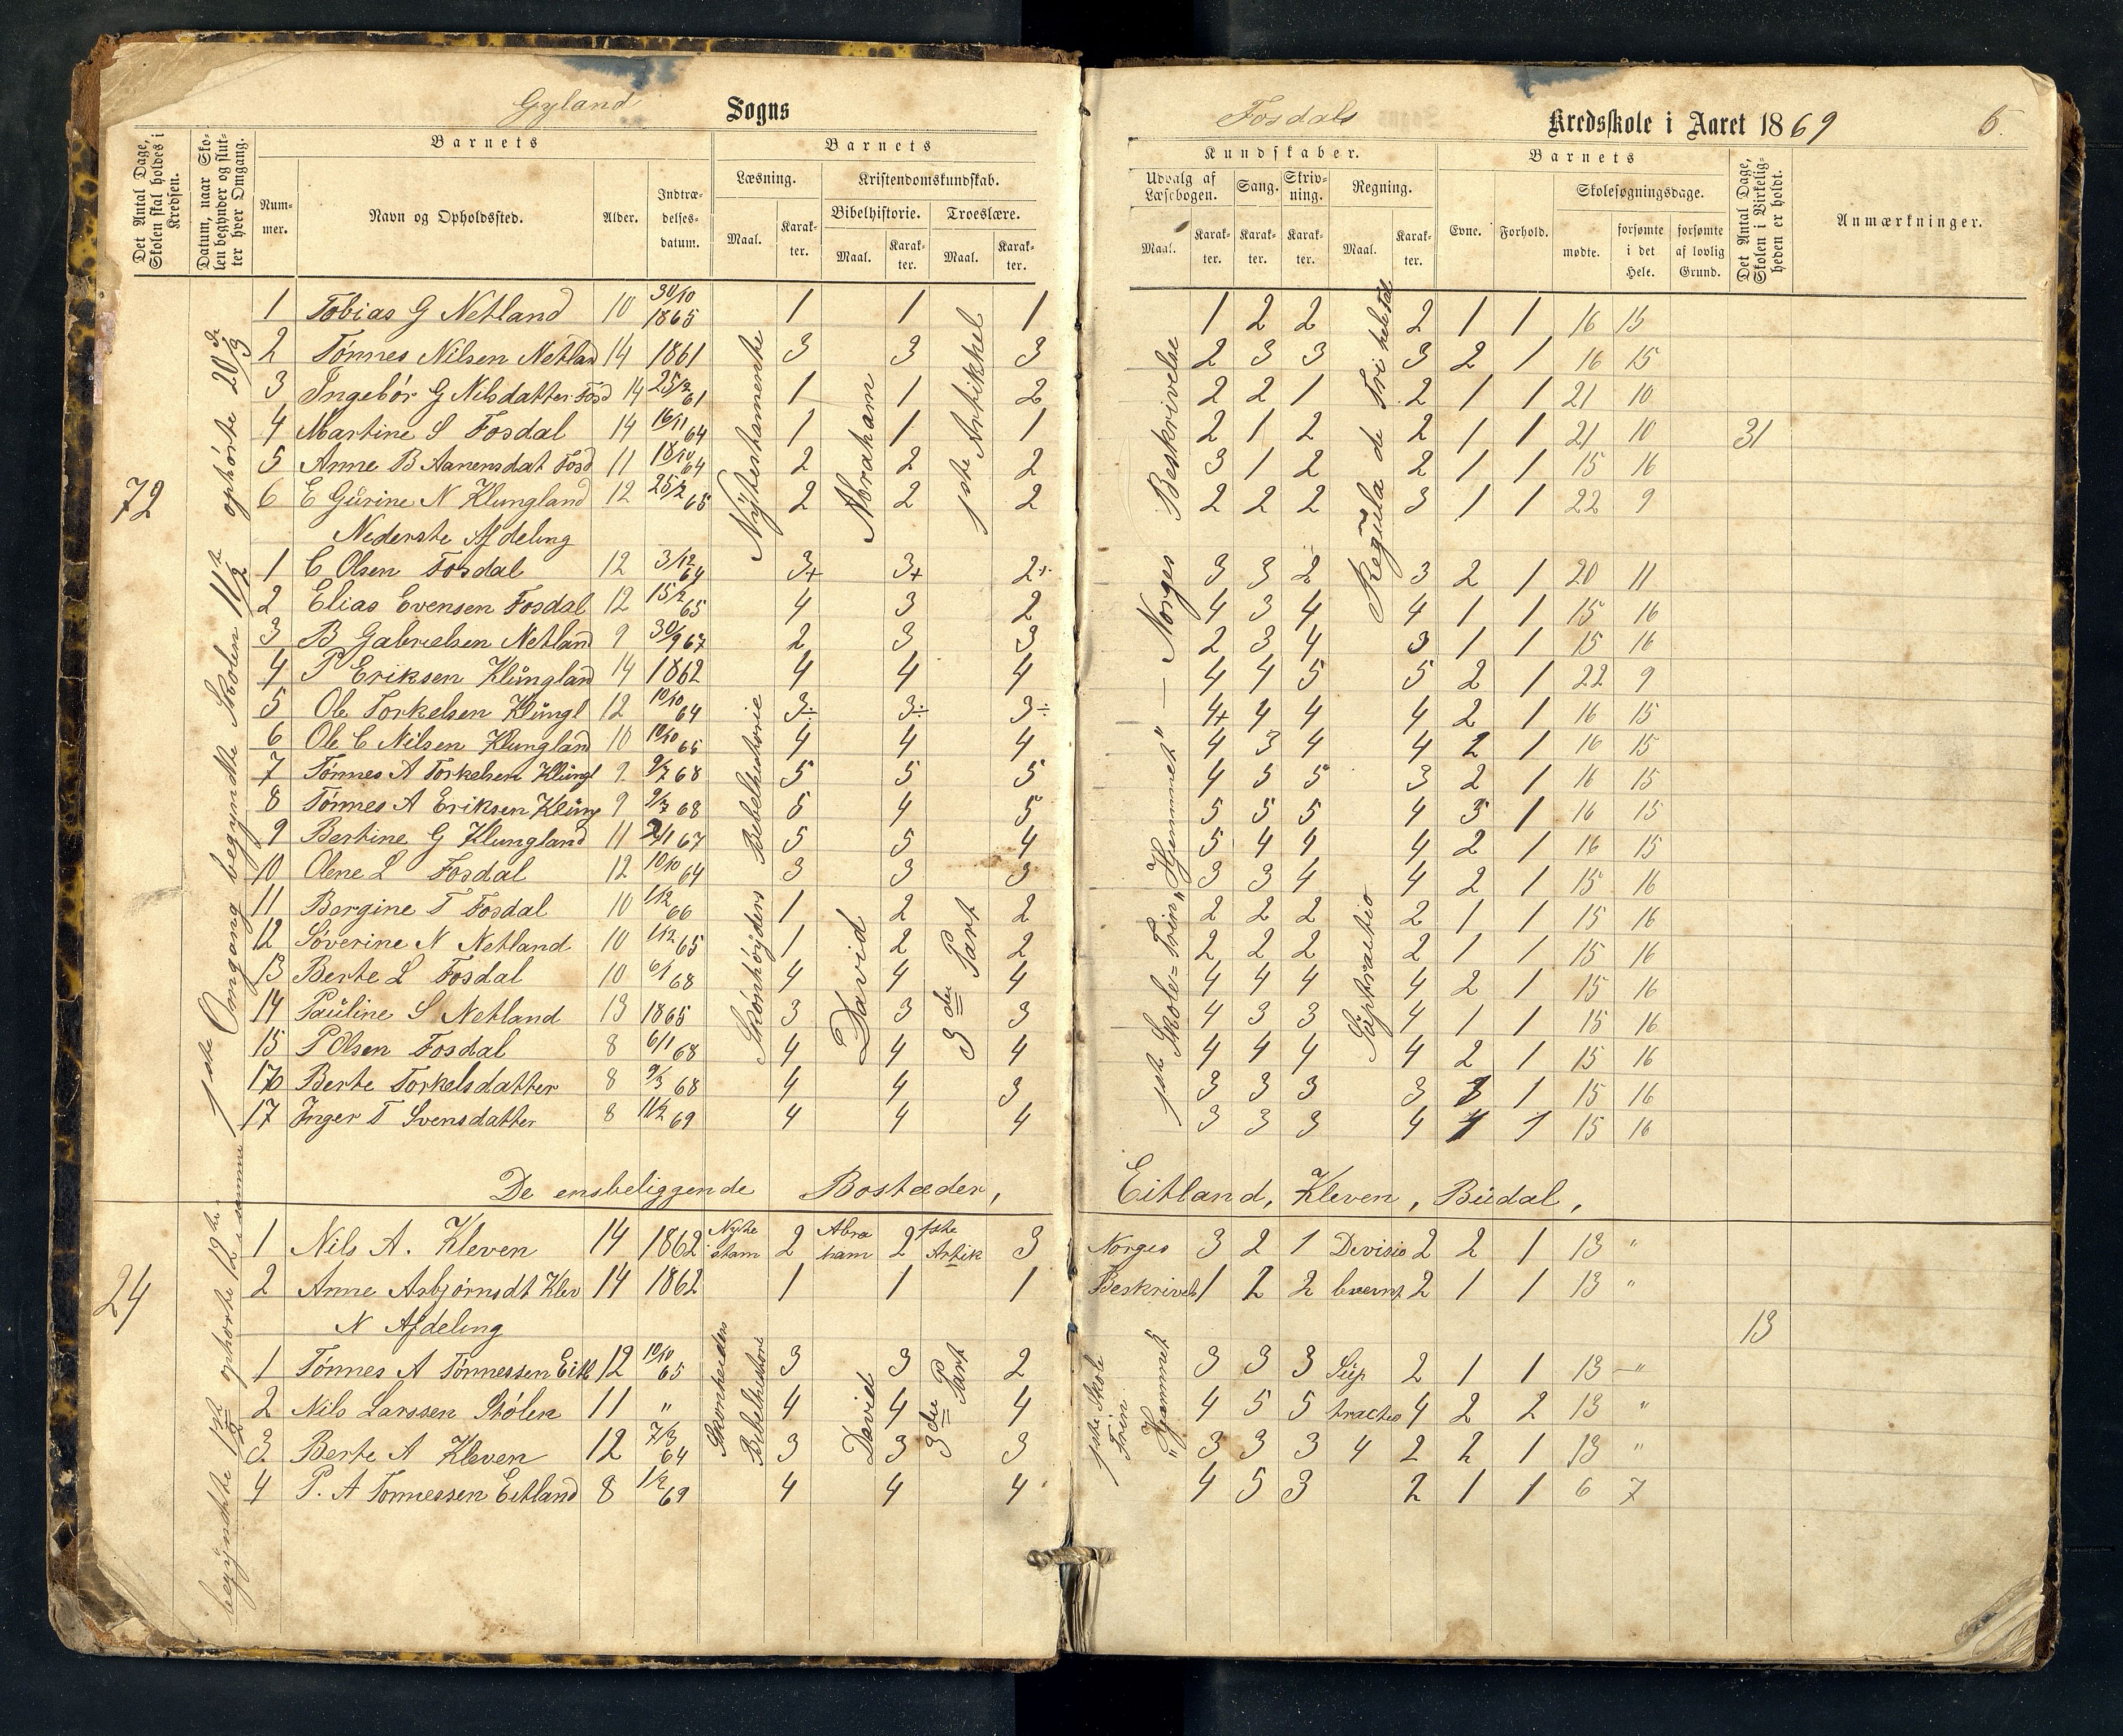 Gyland Sogns
Fosdals Kredsskole i Aaret 1869 6.
Det Antal Dage, Skolen skal holdes i Kredsen.
Datum, naar Skolen begynder og slutter hver Omgang.
Barnets
Nummer. Navn og Opholdssted. Alder. Indtrædelsesdatum.
Barnets
Læsning. Kristendomskundskab.
Bibelhistorie. Troeslære.
Maal. Karakter. Maal. Karakter. Maal. Karakter.
Kundskaber.
Udvalg af Læsebogen. Sang. Skrivning. Regning.
Maal. Karakter. Karakter. Karakter. Maal. Karakter.
Barnets
Evne. Forhold. Skolesøgningsdage.
mødte. forsømte i det Hele. forsømte af lovlig Grund.
Det Antal Dage, Skolen i Virkeligheden er holdt.
Anmærkninger.
72
1ste Omgang begyndte Skolen 11te/2 ophørte 20de/3
Nÿtestamente
Abraham
1ste Artikkel
Norges Beskrivelse
Regula de Tri hele Tal
31
1 Tobias G Netland 10 30/10 1865 1 1 1 1 2 2 2 1 1 16 15
2 Tønnes Nilsen Netlan 14 1861 3 3 3 2 3 3 3 2 1 16 15
3 Ingebór G Nilsdatter Fosd 14 25/2 61 1 1 2 2 2 1 2 1 1 21 10
4 Martine S Fosdal 14 16/11 64 1 1 1 2 1 2 2 1 1 21 10
5 Anne B Aanensdat Fosd 11 18/10 64 2 2 2 3 1 2 2 1 1 15 16
6 E Gürine N Klungland 12 25/2 65 2 2 2 2 2 2 3 1 1 22 9
Nederste Afdeling
Skónhóÿders Bibelhistorie
David
3die Part
1ste Skole=Trin „Hjemmet"
Süptractio
1 C Olsen Fosdal 12 3/12 64 3+ 3+ 2+ 3 3 2 3 2 1 20 11
2 Elias Evensen Fosdal 12 15/2 65 4 3 2 4 3 4 4 1 1 15 16
3 B Gabrielsen Netland 9 30/9 67 2 3 3 2 3 4 3 1 1 15 16
4 P Eriksen Klüngland 14 1862 4 4 4 4 4 5 5 2 1 22 9
5 Ole Torkelsen Klüngl 12 10/10 64 3÷ 3÷ 3÷ 4+ 4 4 4 2 1 16 15
6 Ole C Nilsen Klungland 10 10/10 65 4 4 4 4 3 4 4 2 1 16 15
7 Tønnes A Torkelsen Klüngl 9 9/7 68 5 5 5 4 5 5 3 2 1 16 15
8 Tønnes A Eriksen Klüng 9 9/7 68 5 4 5 5 5 5 4 3 1 16 15
9 Bertine G Klungland 11 2/11 67 5 5 4 5 4 4 4 2 1 16 15
10 Olene L Fosdal 12 10/10 64 3 3 3 3 3 4 4 2 1 15 16
11 Bergine T Fosdal 10 1/12 66 1 2 2 2 2 2 2 1 1 15 16
12 Sóverine N Netland 10 1/12 65 1 2 2 2 2 2 2 1 1 15 16
13 Berte L Fosdal 10 6/1 68 4 4 4 4 4 4 4 2 1 15 16
14 Paüline S Netland 13 1865 3 3 3 4 3 3 4 1 1 15 16
15 P Olsen Fosdal 8 6/1 68 4 4 4 4 4 4 4 2 1 15 16
16 Berte Torkelsdatter 8 9/3 68 4 4 3 3 3 3 3 1 15 16
17 Inger T Svensdatter 8 11/2 69 4 4 4 3 3 3 4 1 15 16
De ensbeliggende Bostæder, Eitland, Kleven, Büdal,
24
begyndte 1ste/2 ophorte 12te samme
13
1 Nils A. Kleven 14 1862 Nyte stam 2 Abra ham 2 1ste Artik 3 Norges 3 2 1 Devisio 2 2 1 13 "
2 Anne Asbjørnsdt Klev 14 1862 1 1 1 Beskrivels 1 2 2 2 1 1 13 "
N Afdeling
Skonheiders Bibelhistorie
David
3die Part
1ste Skole Trin „Hjemmet"
1 Tønnes A Tønnessen Eitl 12 10/10 65 3 3 2 3 3 3 Süp 2 1 1 13 — "
2 Nils Larssen Stólen 11 " 4 4 4 4 5 5 tractio 4 2 2 13 "
3. Berte A Kleven 12 7/3 64 3 3 3 3 3 3 4 2 2 1 13 "
4 P. A Tonnessen Eitland 8 1/2 69 4 4 4 4 5 3 2 1 1 6 7